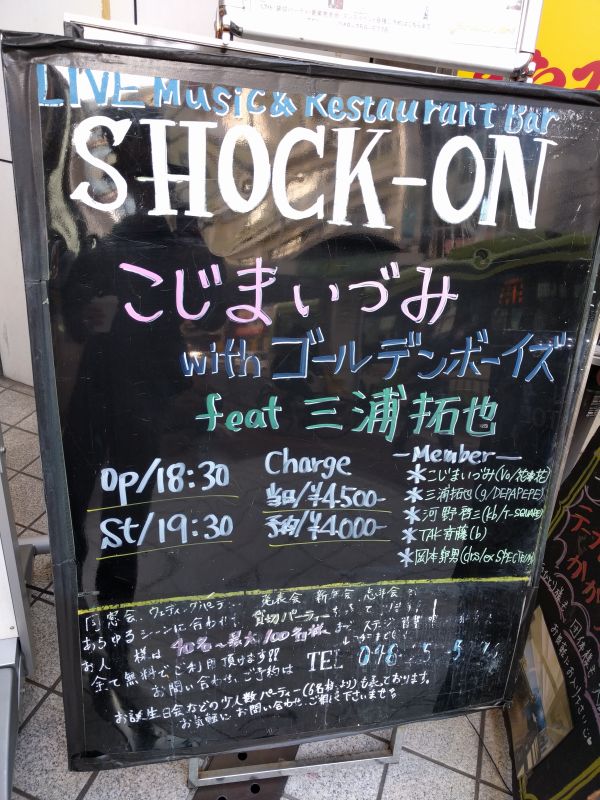 LIVE Music & Restaurant Bar
SHOCK-ON
こじまいづみ
with ゴールデンボーイズ
feat 三浦拓也
Op/18:30
St/19:30
Charge
当日/¥4500-
予約/¥4000-
-Member-
*こじまいづみ(Vo/花*花)
*三浦拓也(g/DEPAPEPE)
*河野啓三(kb/T-SQUARE)
*TAK斉藤(b)
*岡本郭男(drs/ex SPECTRUM)
同窓会、ウェディングパーティ 発表会、新年会、忘年会
あらゆるシーンに合わせ 貸切パーティー
お人 様は 40名~最大100名様まで ステージ
全て無料でご利用頂けます!!
お問い合わせ、ご予約は TEL 048
お誕生日会などの少人数パーティー(6名様より)も承っております。
お気軽にお問い合わせ、ご相談下さいませ